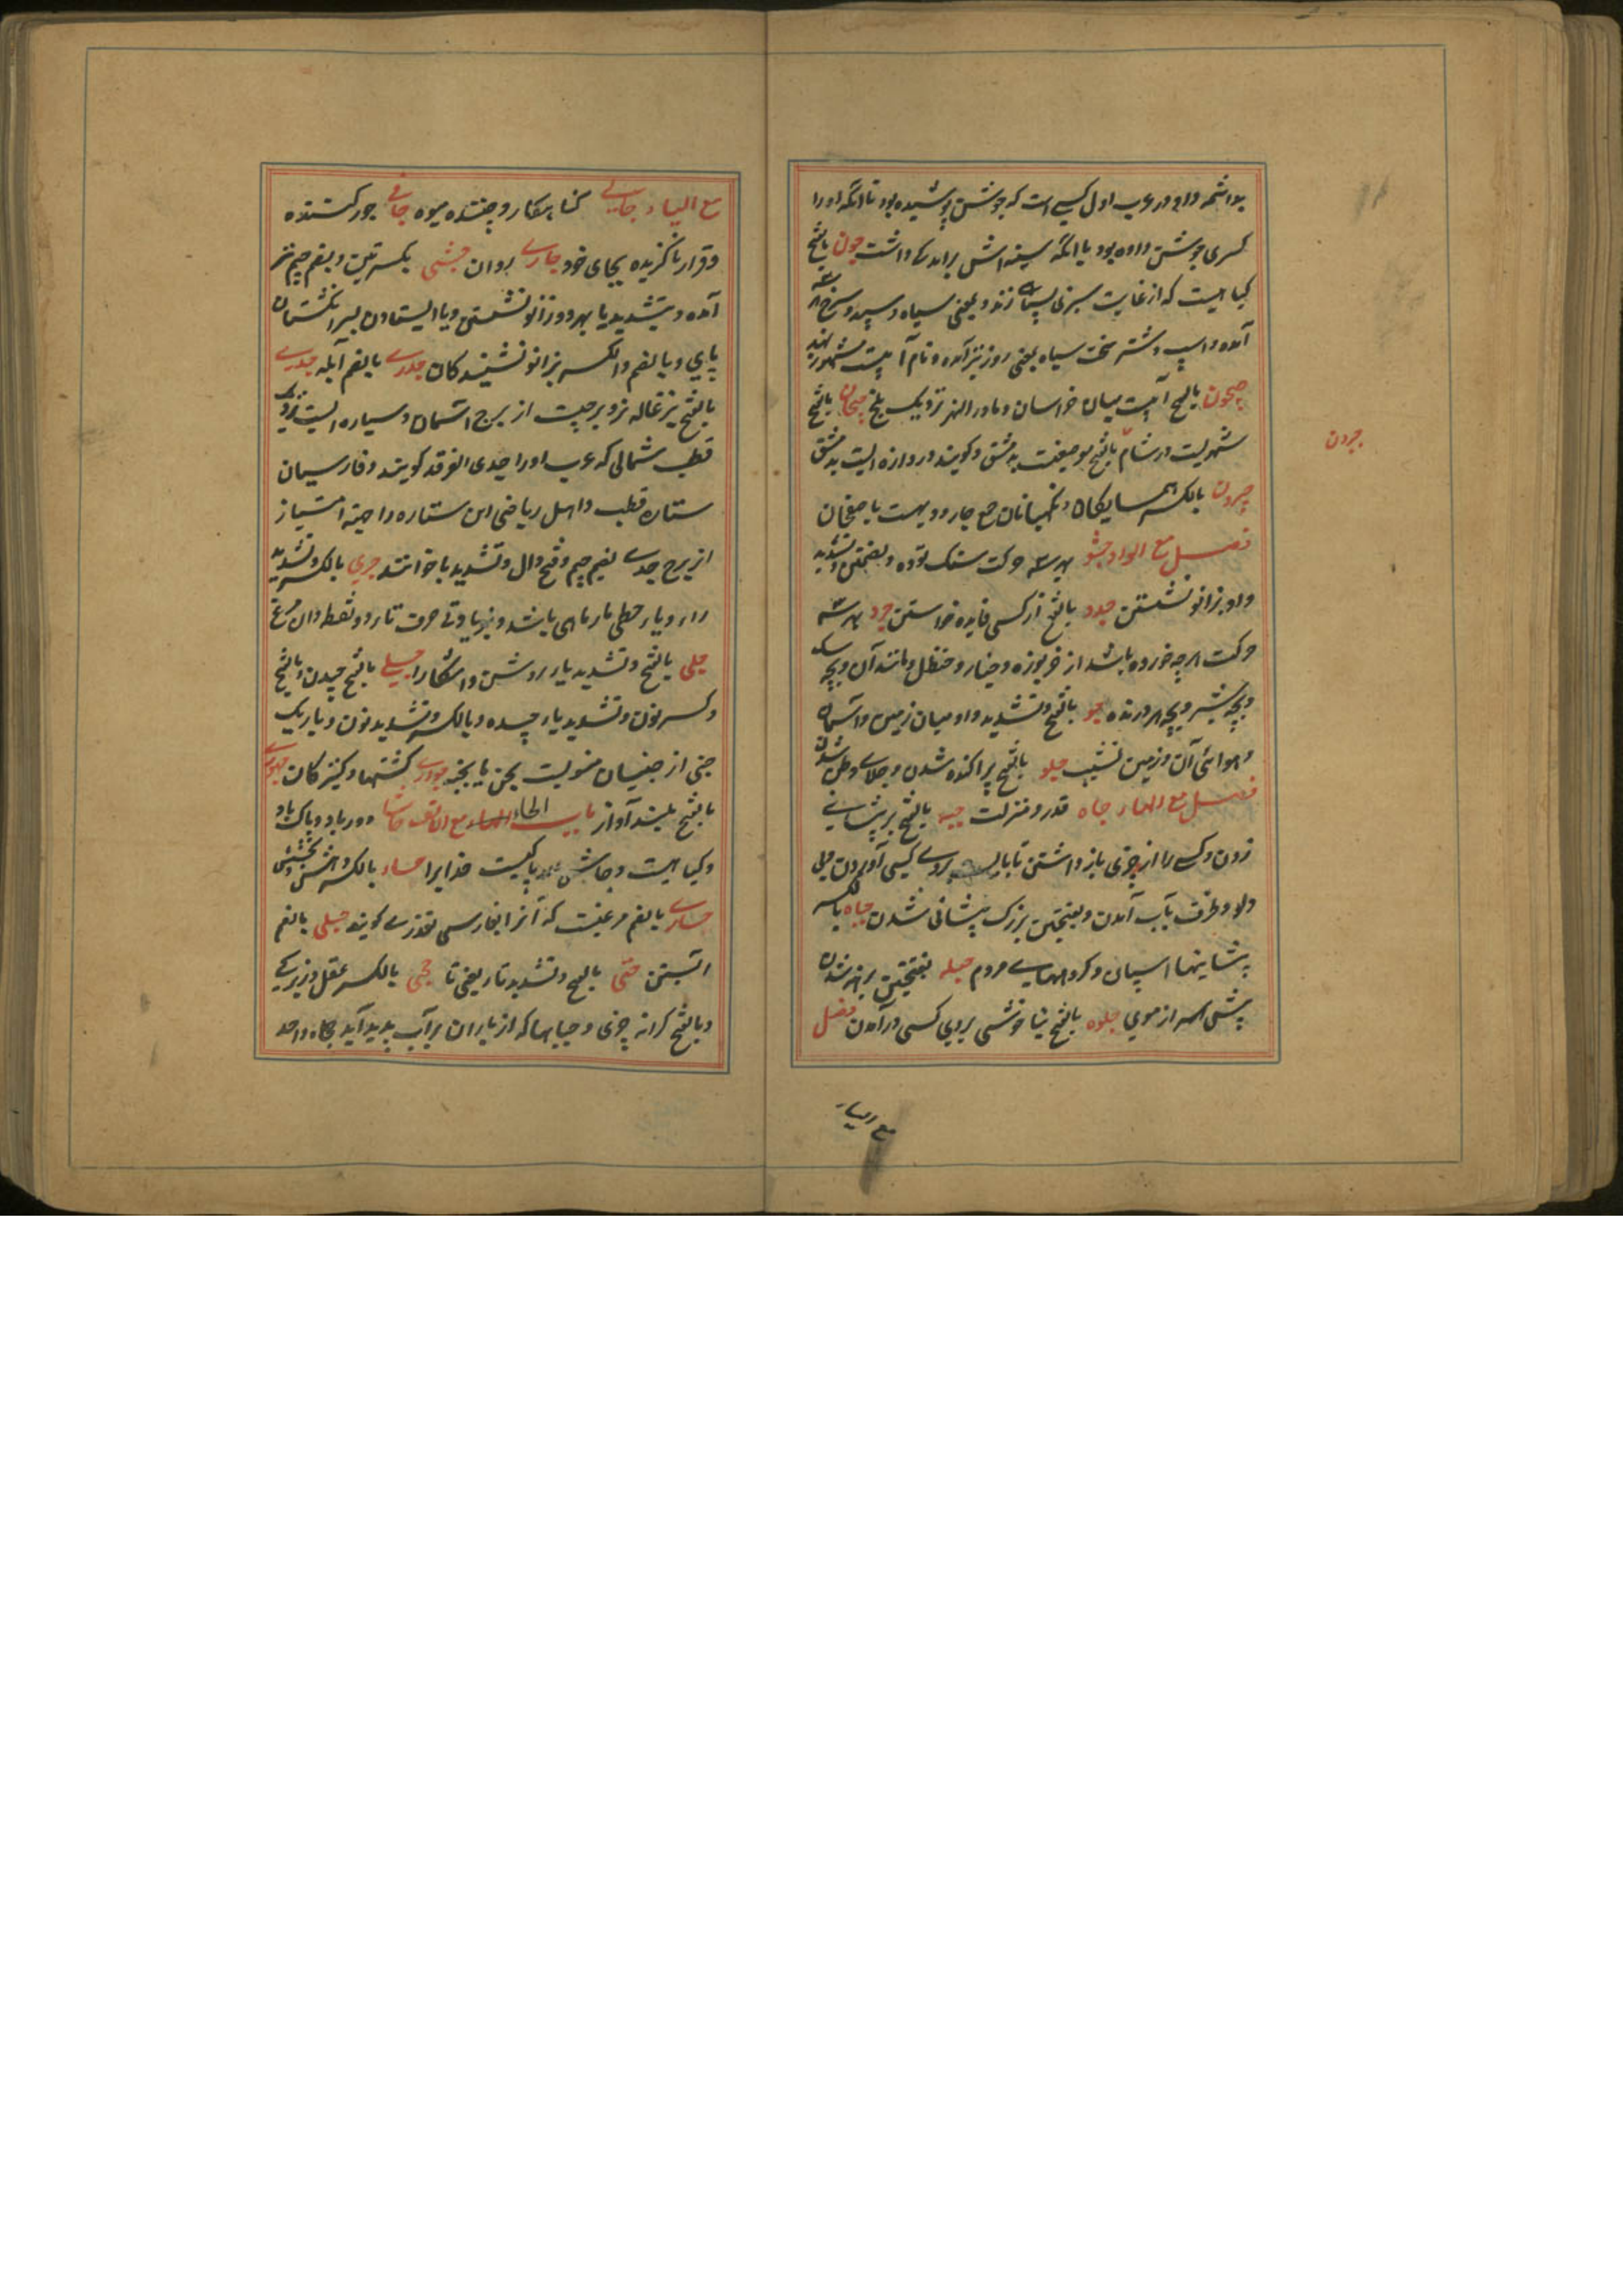 بود اشعر واو در عرب اول کسی است که جوشن پوشیده بود تا آنکه او را
کسری جوشن داده بود یا آنکه سینه اش برآمدگی داشت جون بالفتح
گیاهیست که از غایت سبزی بسیاهی زند و بمعنی سیاه و سپید و سرخ هر سه
آمده و اسپ و شتر سخت سیاه بمعنی روز نیز آمده و نام آبیست مشهور بهند
جیحون بالفتح آبیست میان خراسان و ماوراء النهر نزدیک بلخ جیحان بالفتح
شهریست در شام بالفتح موضعیست بدمشق و گویند دروازه ایست بدمشق
جیرون
جیران بالکسر همسایگان و نگهبانان جمع جار و دیهیست باصفهان
فصل مع الواو جثو بهر سه حرکت سنگ توده و بضمتین و تشدید
واو بزانو نشستن جدو بالفتح از کسی فایده خواستن جرو بهر سه
حرکت هر چه خورده باشد از خربوزه و خیار و حنظل و مانند آن و بچه سگ
و بچه شیر و بچه هر درنده جو بالفتح و تشدید واو میان زمین و آسمان
و هوائی آن و زمین نشیب جلو بالفتح پراکنده شدن و جلای وطن شدن
فصل مع الهاء جاه قدر و منزلت جبه بالفتح بر پیشانی
زدن و کسی را از چیزی باز داشتن بروی کسی آوردن
و بی دلو و ظرف بآب آمدن و بفتحتین بزرگ پیشانی شدن جباه بالکسر
پیشانیها اسپان و گروههای مردم جبله بفتحتین برهنه شدن
پیش سر از موی جلوه بالفتح بناخوشی بروی کسی در آمدن فصل
مع الیاء
مع الیاء جانی گناهکار و چیننده میوه جافی جور کننده
و قرار ناگزیده بجای خود جاری روان جثی بکسرتین و بضم جیم نیز
آمده و بتشدید یا بهر دو زانو نشستن و یا ایستادن بسر انگشتان
پای و بالضم والکسر بزانو نشینندگان جدری بالضم آبله جدی
بالفتح بزغاله نر و برجیست از برج آسمان و سیاره ایست نزدیک
قطب شمالی که عرب او را جدی الفرقد گویند و فارسیان
ستاره قطب و اهل ریاضی این ستاره را جهة امتیاز
از برج جدی بضم جیم و فتح دال و تشدید یا خوانند جری بالکسر و تشدید
راء و یاء حطی مار ماهی باشد
جلی بالفتح و تشدید یاء روشن و آشکارا جنی بالفتح چیدن و بالفتح
و کسر نون و تشدید یاء چیده و بالکسر و تشدید نون و یا یک
جنی از جنیان منسوبست بجن یا بجنه جواری کشتیها و کنیزکان جهوری
بالفتح بلند آواز باب الحاء مع الالف حاشا دور باد و پاک باد
و گیاهیست و حاش لله پاکیست خدای را حباء بالکسر بخشش
حباری بالضم مرغیست که آنرا بفارسی تغذری گویند حبلی بالضم
آبستن حتی بالفتح و تشدید تاء یعنی تا حجی بالکسر عقل و زیرکی
و بالفتح کرانه چیزی و حبابها که از باران بر آب پدید آید حجاه واحد